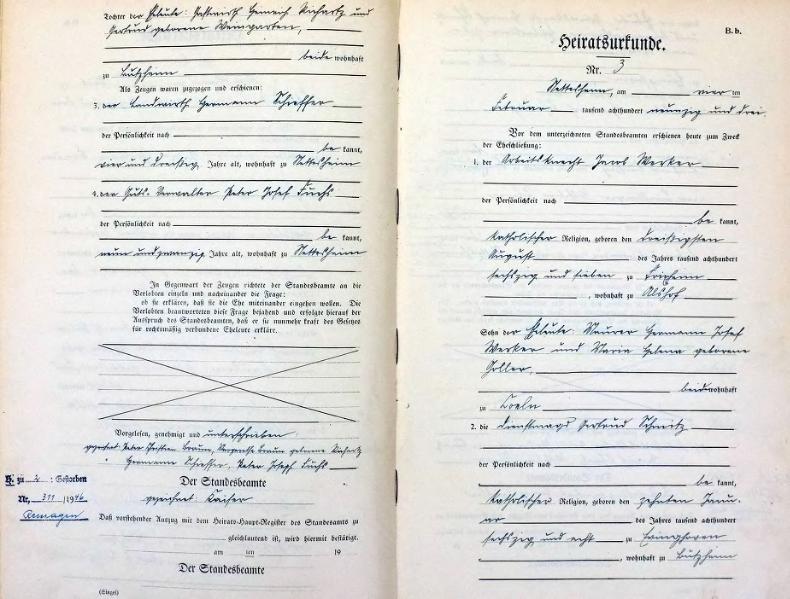 Tochter der Eheleute: Gastwirth Heinrich Richartz und
Gertrud geborene Weingarten,
beide wohnhaft
zu Butzheim
Als Zeugen waren zugezogen und erschienen:
3. der Landwirth Hermann Schieffer
der Persönlichkeit nach
be kannt,
vier und dreißig, Jahre alt, wohnhaft zu Nettesheim
4. der Guts-Verwalter Peter Josef Fuchs
der Persönlichkeit nach
be kannt,
neun und zwanzig Jahre alt, wohnhaft zu Nettesheim
In Gegenwart der Zeugen richtete der Standesbeamte an die
Verlobten einzeln und nacheinander die Frage:
ob sie erklären, daß sie die Ehe miteinander eingehen wollen. Die
Verlobten beantworteten diese Frage bejahend und erfolgte hierauf der
Ausspruch des Standesbeamten, daß er sie nunmehr kraft des Gesetzes
für rechtmäßig verbundene Eheleute erkläre.
Vorgelesen, genehmigt und unterschrieben
gezeichnet Peter Christian Braun, Braun geborene Richartz
Hermann Schieffer, Peter Joseph Fuchs
Der Standesbeamte
gezeichnet: Kaiser
H. zu 2 : Gestorben
Nr. 311 /1946
Remagen
Daß vorstehender Auszug mit dem Heirats-Haupt-Register des Standesamts zu
gleichlautend ist, wird hiermit bestätigt.
am ten 19
Der Standesbeamte
(Siegel)
B. b.
Heiratsurkunde.
Nr. 3
Nettesheim, am vier ten
Februar tausend achthundert neunzig und drei.
Vor dem unterzeichneten Standesbeamten erschienen heute zum Zweck
der Eheschließung:
1. der Arbeitsknecht Jacob Werker
der Persönlichkeit nach
be kannt,
katholischer Religion, geboren den dreißigsten
August des Jahres tausend achthundert
sechszig und sieben zu
, wohnhaft zu
Sohn der Eheleute Maurer Hermann Josef
Werker und Maria Helena geborene
beide wohnhaft
zu Coeln
2. die Dienstmagd Gertrud Schmitz
der Persönlichkeit nach
be kannt,
katholischer Religion, geboren den zehnten Janu-
ar des Jahres tausend achthundert
sechszig und acht zu Evinghoven
, wohnhaft zu Butzheim